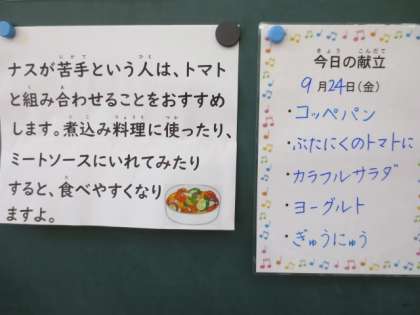 ナスが苦手という人は、トマト
と組み合わせることをおすすめ
します。煮込み料理に使ったり、
ミートソースにいれてみたり
すると、食べやすくなり
ますよ。
今日の献立
9月24日(金)
・コッペパン
・ぶたにくのトマトに
・カラフルサラダ
・ヨーグルト
・ぎゅうにゅう